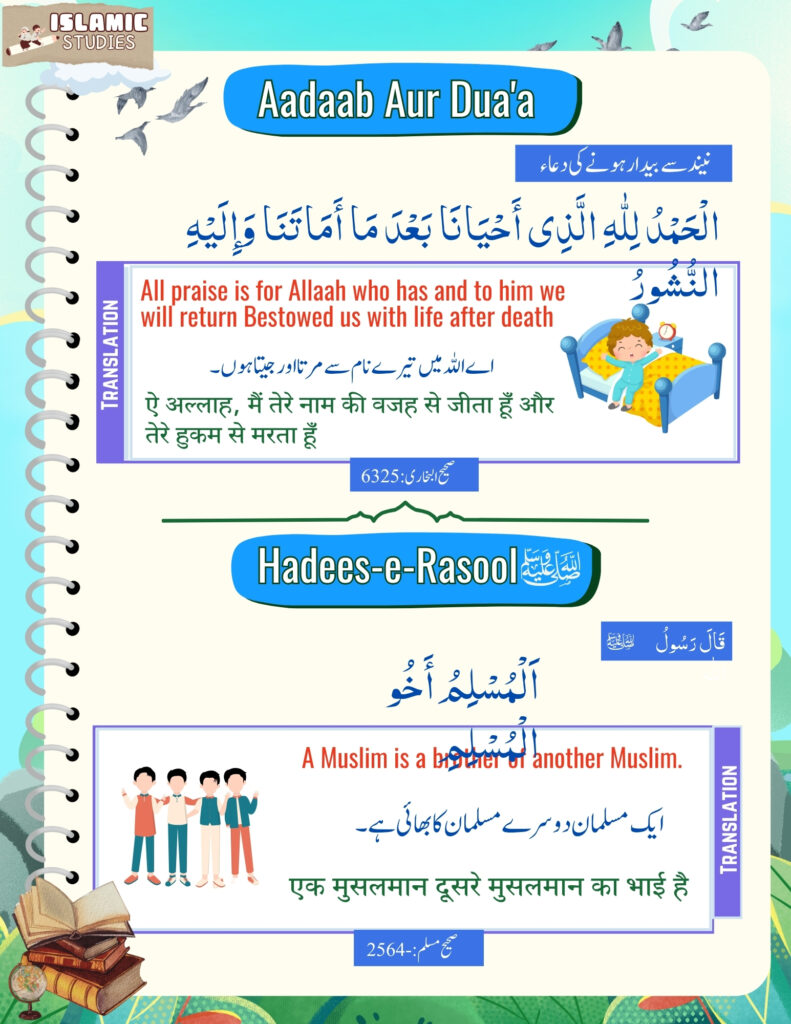 ISLAMIC
STUDIES
Aadaab Aur Dua'a
نیند سے بیدار ہونے کی دعاء
الْحَمْدُ لِلّٰهِ الَّذِی أَحْيَانَا بَعْدَ مَا أَمَاتَنَا وَإِلَيْهِ
النُّشُورُ
TRANSLATION
All praise is for Allaah who has and to him we
will return Bestowed us with life after death
اے اللہ میں تیرے نام سے مرتا اور جیتا ہوں۔
ऐ अल्लाह, मैं तेरे नाम की वजह से जीता हूँ और
तेरे हुकम से मरता हूँ
صحیح البخاری:6325
Hadees-e-Rasool ﷺ
قَالَ رَسُولُ ﷺ
اَلْمُسْلِمُ أَخُو
الْمُسْلِمِ
A Muslim is a brother of another Muslim.
TRANSLATION
ایک مسلمان دوسرے مسلمان کا بھائی ہے۔
एक मुसलमान दूसरे मुसलमान का भाई है
صحیح مسلم:-2564